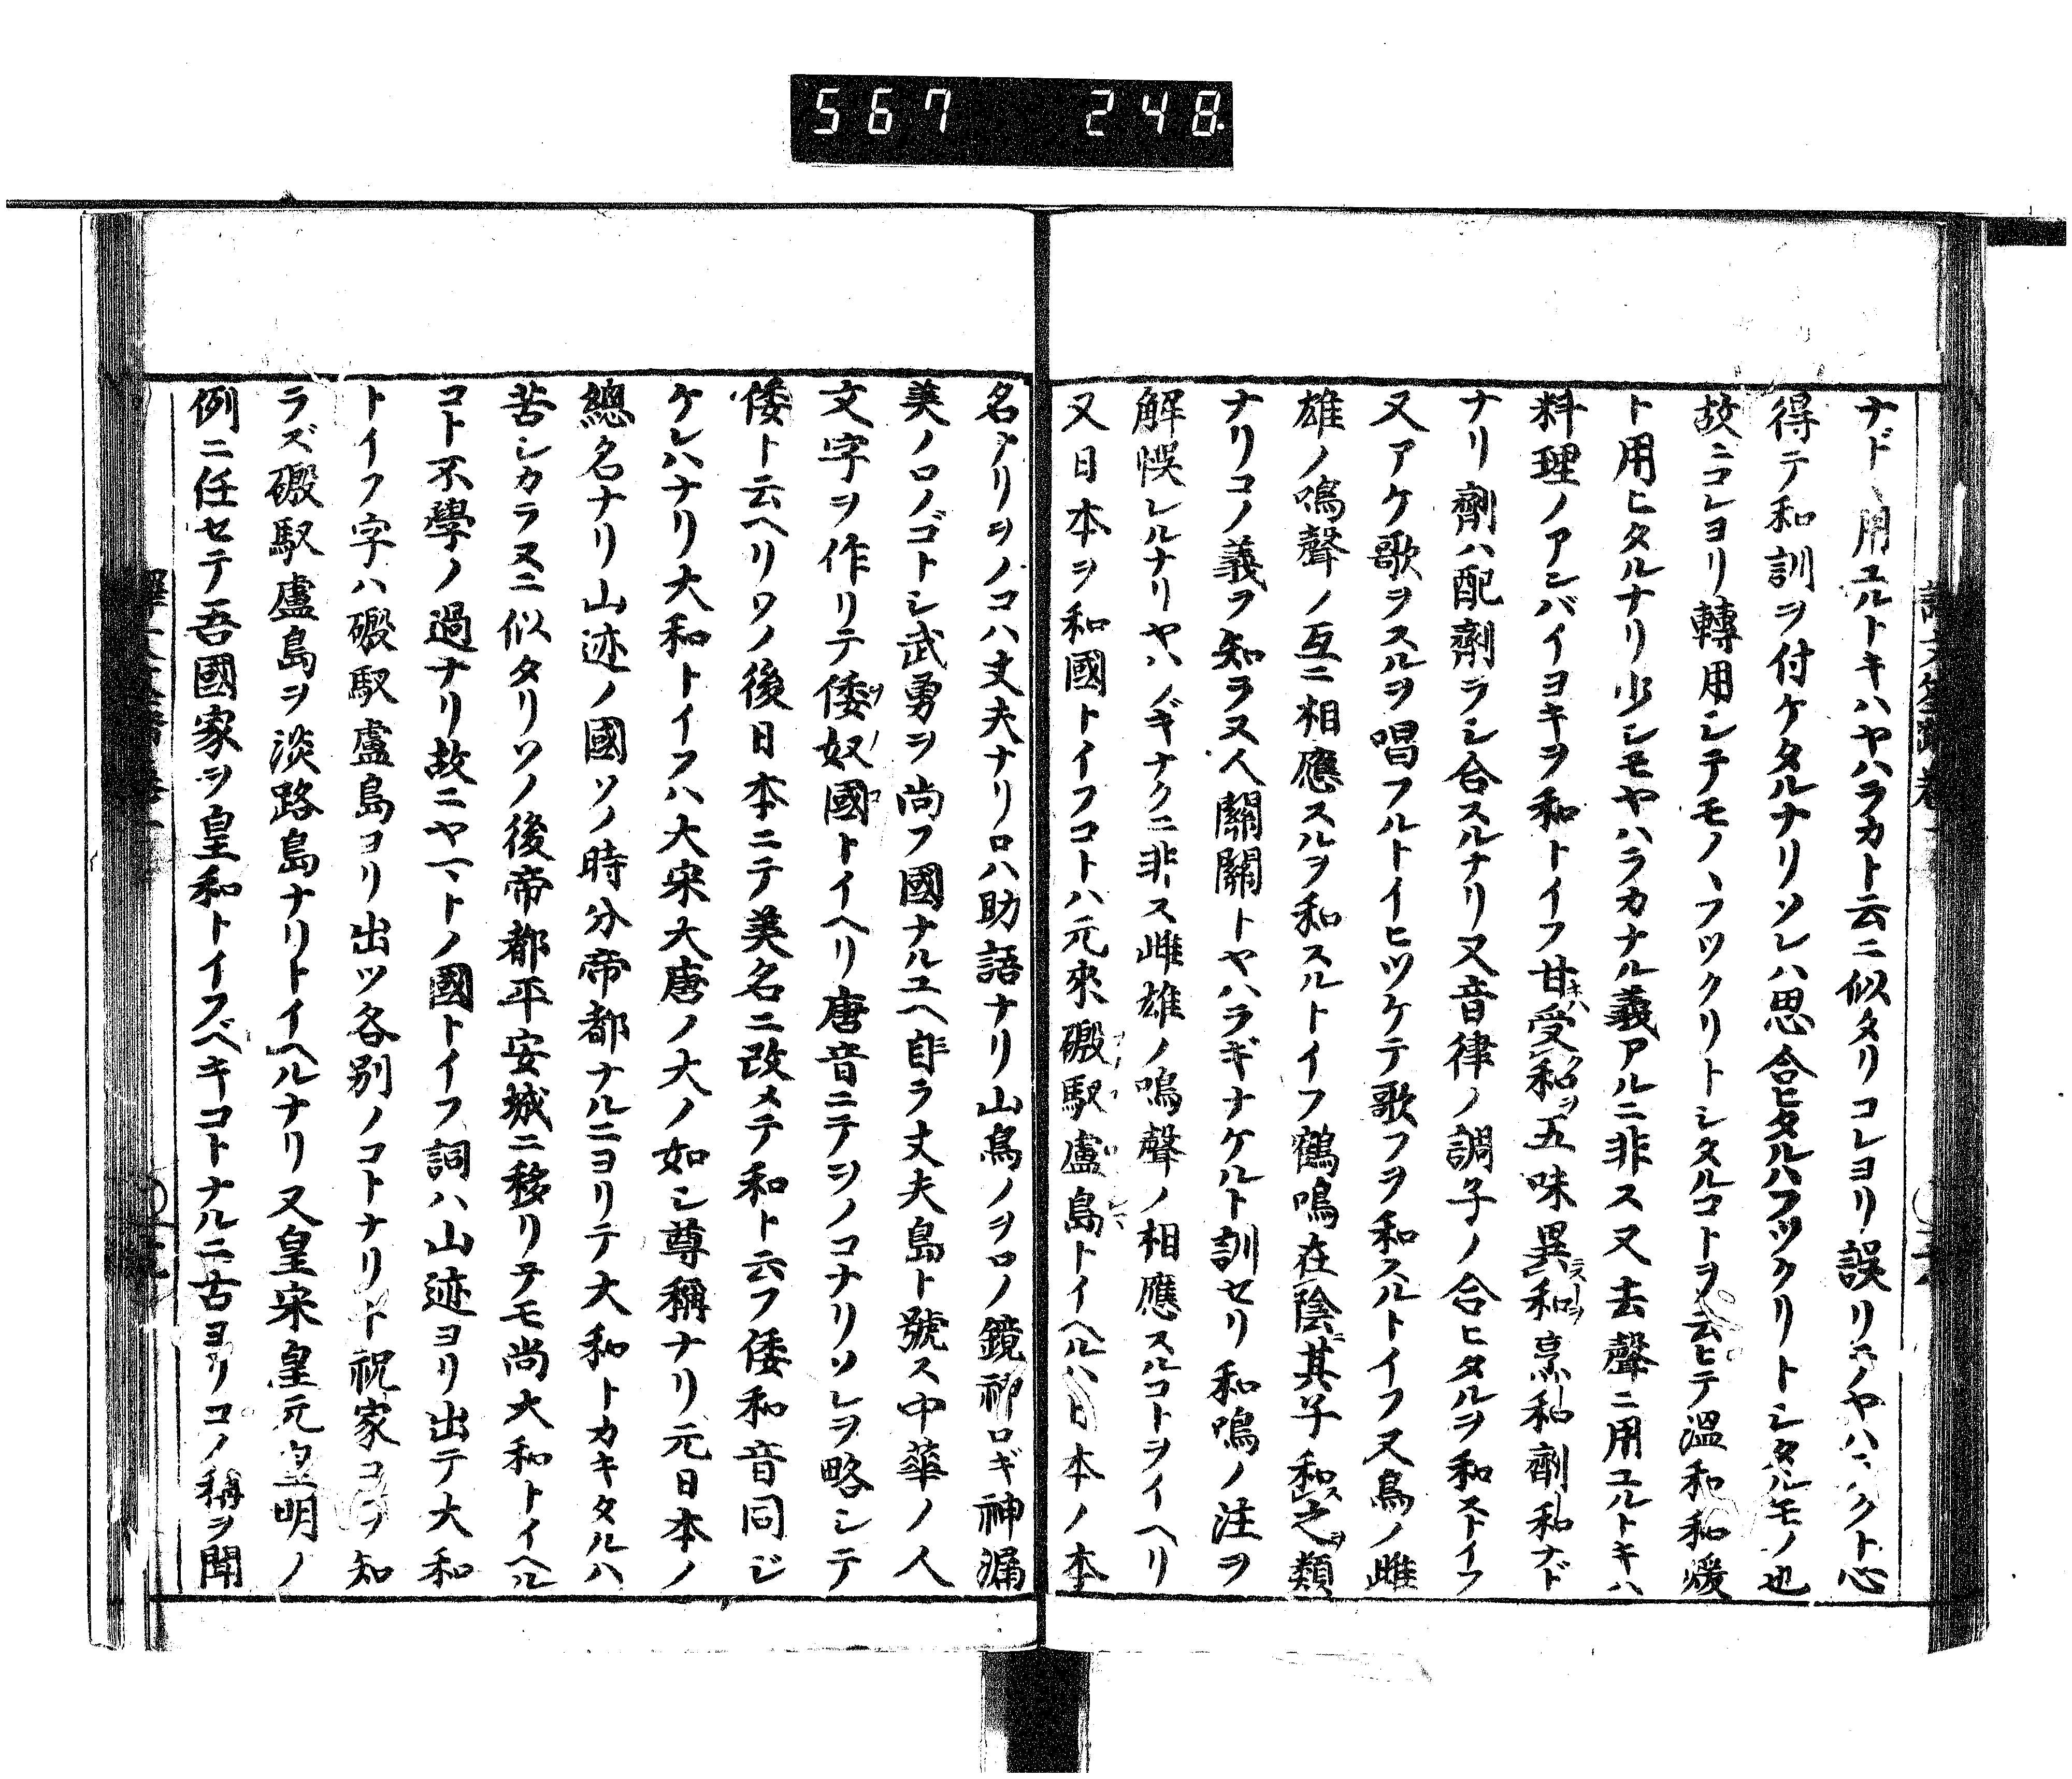 567 248
ナド、用ユルトキハヤハラカト云ニ似タリコレヨリ誤リテノヤハヽクト心
得テ和訓ヲ付ケタルナリソレハ思合ヒタルハフツクリトシタルモノ也
故ニコレヨリ轉用シテモノヽフツクリトシタルコトヲ云ヒテ溫和和煖
ト用ヒタルナリ少シモヤハラカナル義アルニ非ス又去聲ニ用ユルトキハ
料理ノアンバイヨキヲ和トイフ甘受和ヲ五味異和烹和劑和ナド
ナリ劑ハ配劑ヲシ合スルナリ又音律ノ調子ノ合ヒタルヲ和ストイフ
又アケ歌ヲスルヲ唱フルトイヒツケテ歌フヲ和スルトイフ又鳥ノ雌
雄ノ鳴聲ノ互ニ相應スルヲ和スルトイフ鶴鳴在陰其子和之類
ナリコノ義ヲ知ラヌ人關關トヤハラギナケルト訓セリ和鳴ノ注ヲ
解悞レルナリヤハノギナクニ非ス雌雄ノ鳴聲ノ相應スルコトヲイヘリ
又日本ヲ和國トイフコトハ元來磤馭盧島トイヘルハ日本ノ本
名ナリヲノコハ丈夫ナリロハ助語ナリ山鳥ノヲロノ鏡神ロギ神漏
美ノロノゴトシ武勇ヲ尚フ國ナルユヘ自ラ丈夫島ト號ス中華ノ人
文字ヲ作リテ倭奴國トイヘリ唐音ニテヲノコナリソレヲ略シテ
倭ト云ヘリソノ後日本ニテ美名ニ改メテ和ト云フ倭和音同ジ
ケレハナリ大和トイフハ大宋大唐ノ大ノ如シ尊稱ナリ元日本ノ
總名ナリ山迹ノ國ソノ時分帝都ナルニヨリテ大和トカキタルハ
苦シカラヌニ似タリソノ後帝都平安城ニ移リテモ尚大和トイヘル
コト不學ノ過ナリ故ニヤマトノ國トイフ詞ハ山迹ヨリ出テ大和
トイフ字ハ磤馭盧島ヨリ出ツ各別ノコトナリト祝家コレヲ知
ラズ磤馭盧島ヲ淡路島ナリトイヘルナリ又皇宋皇元皇明ノ
例ニ任セテ吾國家ヲ皇和トイフベキコトナルニ古ヨリコノ稱ヲ聞